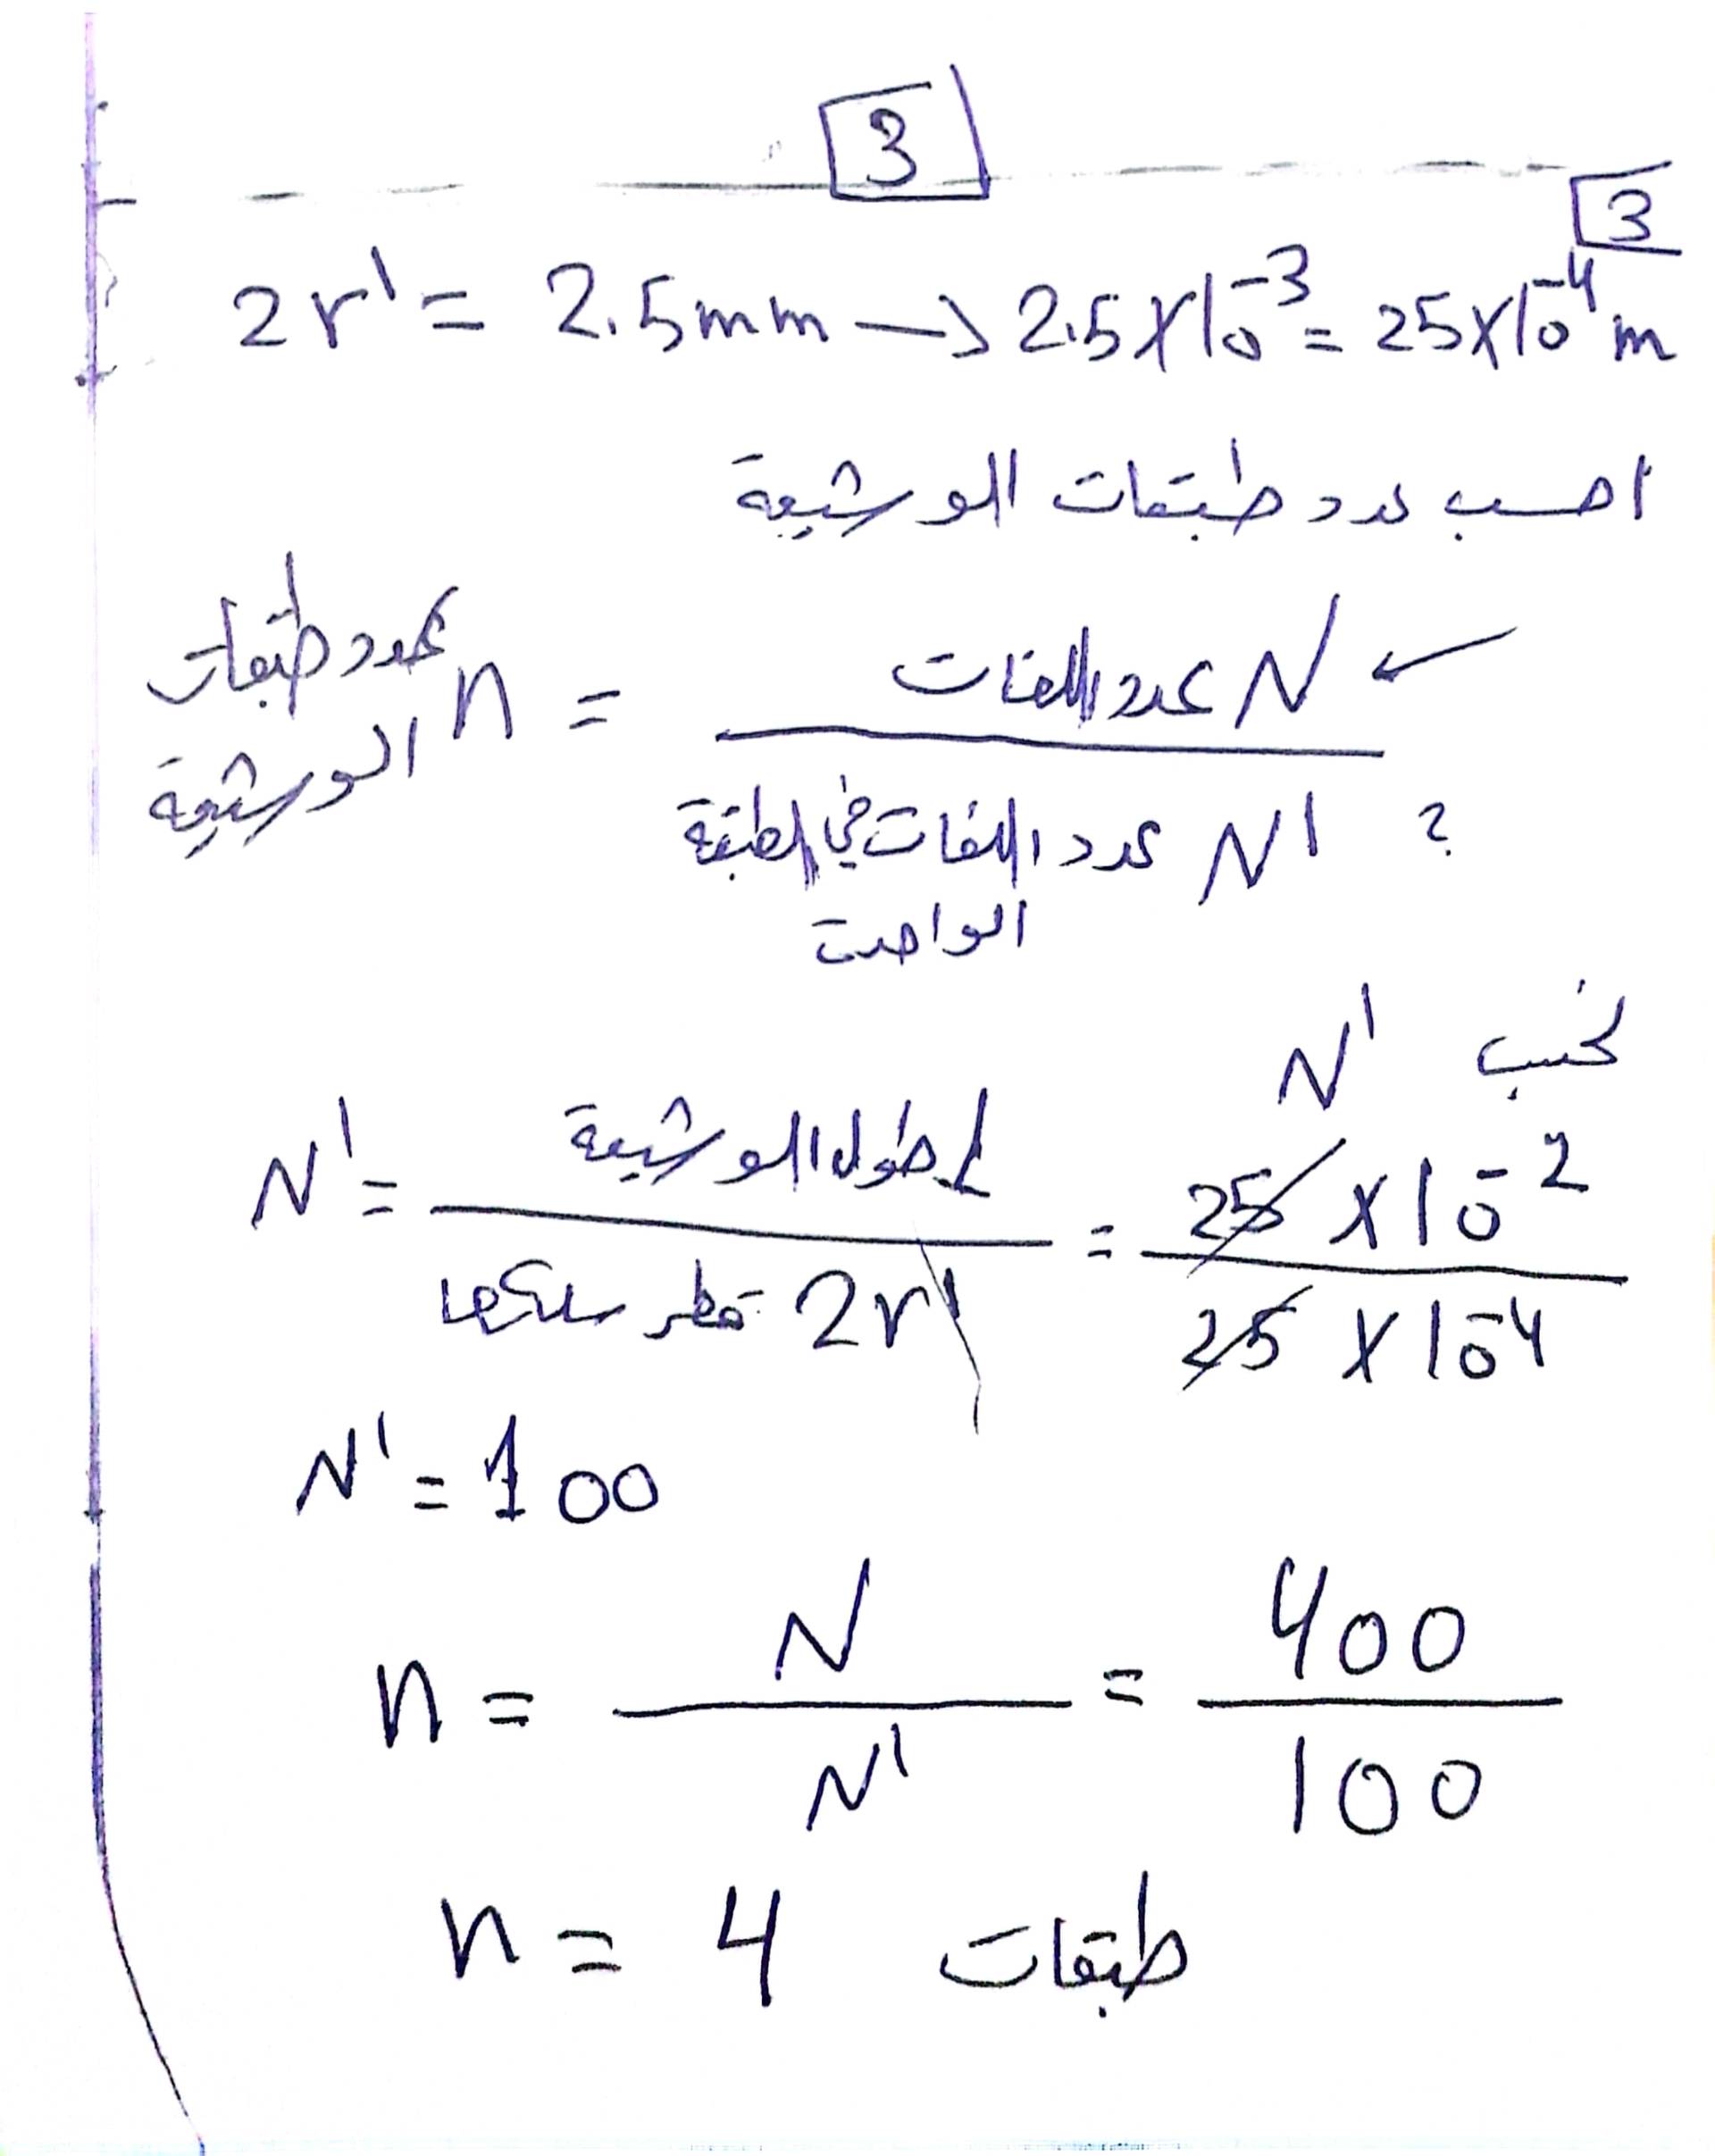 3
3
2r' = 2.5mm → 2.5×10^-3 = 25×10^-4 m
احسب عدد طبقات الوشيعة
عدد طبقات الوشيعة n = N عدد اللفات / N' عدد اللفات في الطبقة الواحدة ?
نحسب N'
N' = L طول الوشيعة / 2r' قطر سلكها = 25 × 10^-2 / 25 × 10^-4
N' = 100
n = N / N' = 400 / 100
n = 4 طبقات